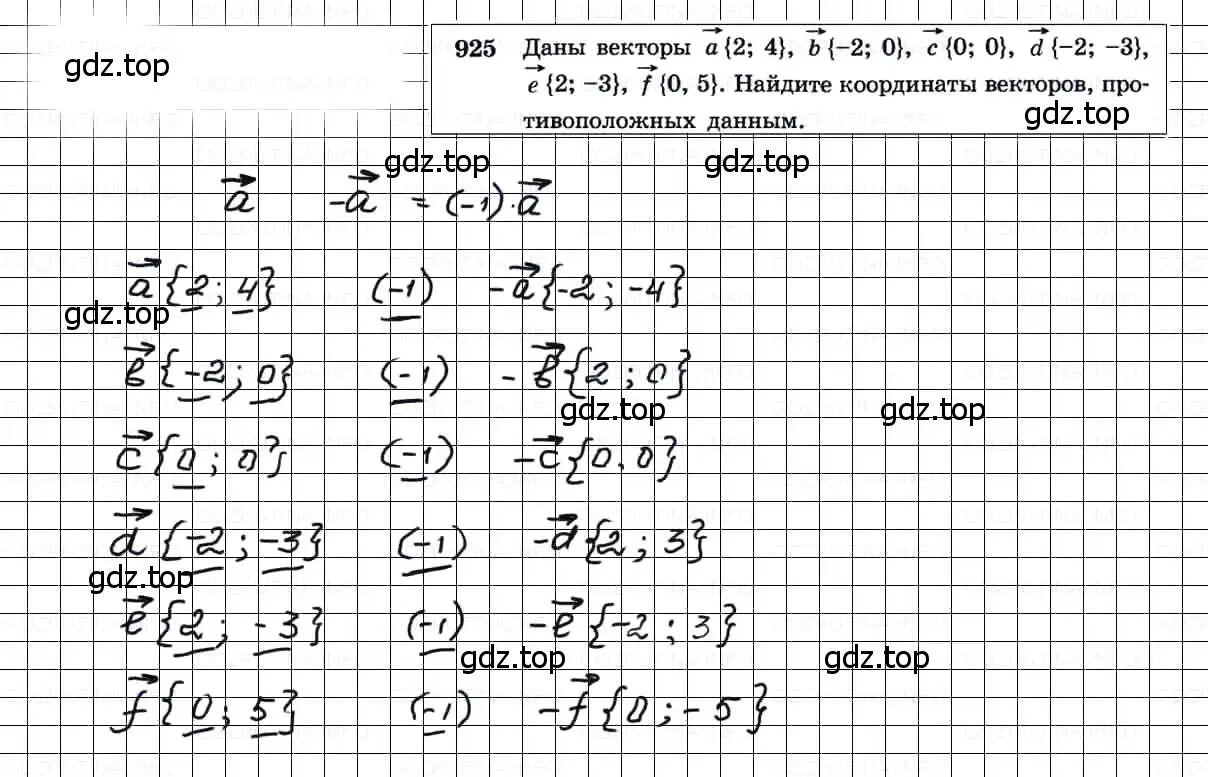 gdz.top
925 Даны векторы a⃗ {2; 4}, b⃗ {−2; 0}, c⃗ {0; 0}, d⃗ {−2; −3},
e⃗ {2; −3}, f⃗ {0, 5}. Найдите координаты векторов, про-
тивоположных данным.
gdz.top
gdz.top gdz.top
a⃗ -a⃗ = (-1)·a⃗
a⃗ {2; 4} (-1) -a⃗ {-2; -4}
gdz.top
b⃗ {-2; 0} (-1) -b⃗ {2; 0}
gdz.top gdz.top
c⃗ {0; 0} (-1) -c⃗ {0, 0}
d⃗ {-2; -3} (-1) -d⃗ {2; 3}
gdz.top
e⃗ {2; -3} (-1) -e⃗ {-2; 3}
gdz.top gdz.top
f⃗ {0; 5} (-1) -f⃗ {0; -5}